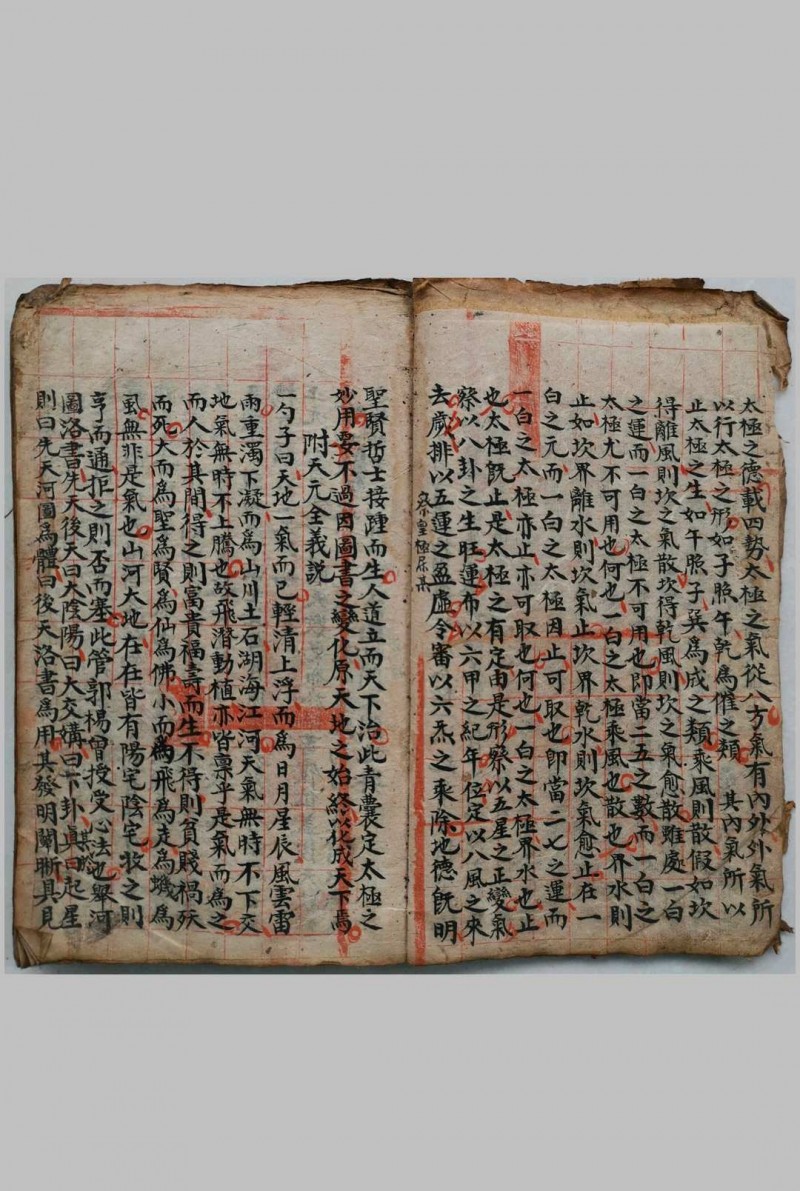 太極之德載四勢太極之氣從八方氣有內外外氣所
以行太極之形如子照午乾為催之類其內氣所以
止太極之生如午照子巽為成之類乘風則散假如坎
得離風則坎之氣散坎得乾風則坎之氣愈散雖處一白
之運而一白之太極不可用也即當二五之數而一白之
太極尤不可用也何也一白之太極乘風也散也界水則
止如坎界離水則坎氣止坎界乾水則坎氣愈止在一
白之元而一白之太極因止可取也即當二七之運而
一白之太極亦止亦可取也何也一白之太極界水也止
也太極既止是太極之有定由是形察以五星之正變氣
察以八卦之生旺運布以六甲之紀年位定以八風之來
去歲排以五運之盈虛令審以六炁之乘除地德既明
祭皇極
聖賢哲士接踵而生人道立而天下治此青囊定太極之
妙用要不過因圖書之變化原天地之始終以化成天下焉
附天元全義說
一勺子曰天地一氣而已輕清上浮而為日月星辰風雲雷
雨重濁下凝而為山川土石湖海江河天氣無時不下交
地氣無時不上騰也故飛潛動植亦皆稟乎是氣而為之
而人於其間得之則富貴福壽而生不得則貧賤禍殀
而死大而為聖為賢為仙為佛小而為飛為走為蠛為
風無非是氣也山河大地在在皆有陽宅陰宅牧之則
亨而通拒之則否而塞此管郭楊曾授受心法也舉河
圖洛書先天後天曰大陰陽曰大交媾曰下卦真曰起星
則曰先天河圖為體曰後天洛書為用其發明闡晰具見